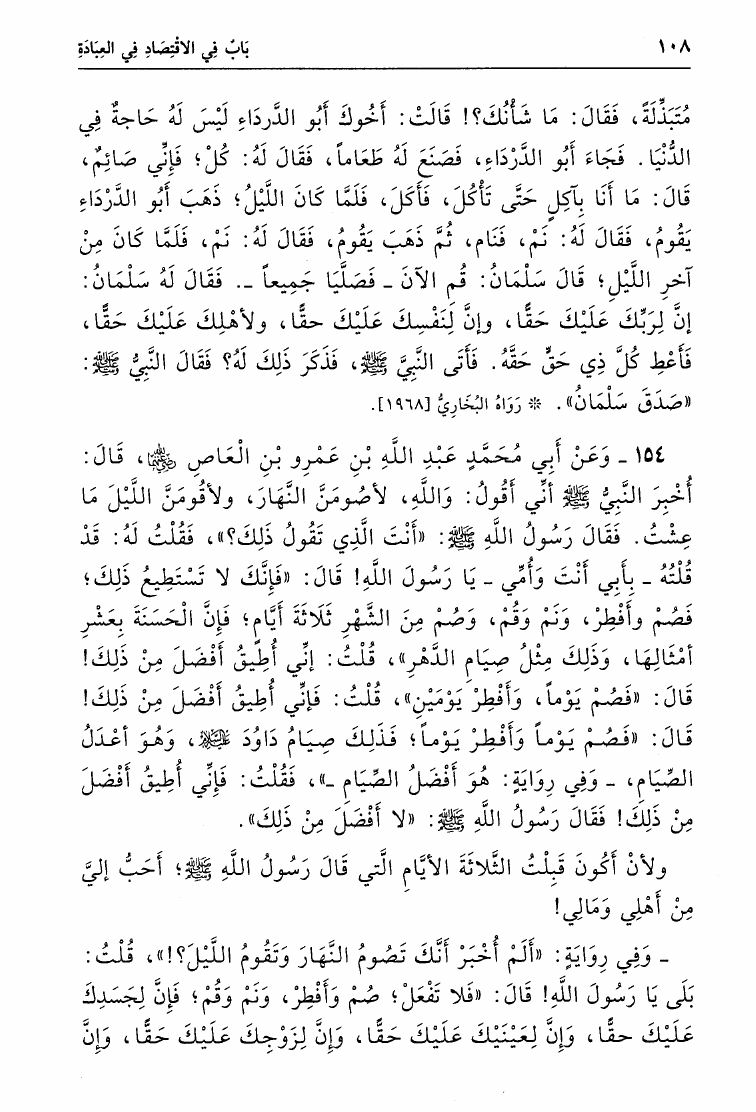 ١٠٨ بَابٌ فِي الاقْتِصَادِ فِي العِبَادَةِ
مُتَبَذِّلَةً، فَقَالَ: مَا شَأْنُكَ؟! قَالَتْ: أَخُوكَ أَبُو الدَّردَاءِ لَيْسَ لَهُ حَاجةٌ فِي
الدُّنْيَا. فَجَاءَ أَبُو الدَّرْدَاءِ، فَصَنَعَ لَهُ طَعَاماً، فَقَالَ لَهُ: كُلْ؛ فَإِنِّي صَائِمٌ،
قَالَ: مَا أَنَا بِآكِلٍ حَتَّى تَأْكُلَ، فَأَكَلَ، فَلَمَّا كَانَ اللَّيْلُ؛ ذَهَبَ أَبُو الدَّرْدَاءِ
يَقُومُ، فَقَالَ لَهُ: نَمْ، فَنَام، ثُمَّ ذَهَبَ يَقُومُ، فَقَالَ لَهُ: نَمْ، فَلَمَّا كَانَ مِنْ
آخرِ اللَّيْلِ؛ قَالَ سَلْمَانُ: قُم الآنَ ـ فَصَلَّيَا جَمِيعاً ـ. فَقَالَ لَهُ سَلْمَانُ:
إنَّ لِرَبِّكَ عَلَيْكَ حَقًّا، وإنَّ لِنَفْسِكَ عَلَيْكَ حقًّا، ولأهْلِكَ عَلَيْكَ حَقًّا،
فَأَعْطِ كُلَّ ذِي حَقٍّ حَقَّهُ. فَأَتَى النَّبِيَّ ﷺ، فَذَكَرَ ذَلِكَ لَهُ؟ فَقَالَ النَّبِيُّ ﷺ:
«صَدَقَ سَلْمَانُ». * رَوَاهُ البُخَارِيُّ [١٩٦٨].
١٥٤ ـ وَعَنْ أَبِي مُحَمَّدٍ عَبْدِ اللَّهِ بْنِ عَمْرِو بْنِ الْعَاصِ رضي الله عنهما، قَالَ:
أُخْبِرَ النَّبِيُّ ﷺ أنِّي أَقُولُ: وَاللَّهِ، لأصُومَنَّ النَّهَارَ، ولأقُومَنَّ اللَّيْلَ مَا
عِشْتُ. فَقَالَ رَسُولُ اللَّهِ ﷺ: «أَنْتَ الَّذِي تَقُولُ ذَلِكَ؟»، فَقُلْتُ لَهُ: قَدْ
قُلْتُهُ ـ بِأَبِي أَنْتَ وَأُمِّي ـ يَا رَسُولَ اللَّهِ! قَالَ: «فَإِنَّكَ لا تَسْتَطِيعُ ذَلِكَ؛
فَصُمْ وأَفْطِرْ، وَنَمْ وَقُمْ، وَصُمْ مِنَ الشَّهْرِ ثَلاثَةَ أَيَّامٍ؛ فَإِنَّ الْحَسَنَةَ بِعَشْرِ
أمْثَالِهَا، وَذَلِكَ مِثْلُ صِيَامِ الدَّهْرِ»، قُلْتُ: إنِّي أُطِيْقُ أَفْضَلَ مِنْ ذَلِكَ!
قَالَ: «فَصُمْ يَوْماً، وَأَفْطِرْ يَوْمَيْنِ»، قُلْتُ: فَإِنِّي أُطِيقُ أَفْضَلَ مِنْ ذَلِكَ!
قَالَ: «فَصُمْ يَوْماً وَأَفْطِرْ يَوْماً؛ فَذَلِكَ صِيَامُ دَاوُدَ عليه السلام، وَهُوَ أعْدَلُ
الصِّيَامِ، ـ وَفِي رِوَايَةٍ: هُوَ أَفْضَلُ الصِّيَامِ ـ»، فَقُلْتُ: فَإِنِّي أُطِيقُ أَفْضَلَ
مِنْ ذَلِكَ! فَقَالَ رَسُولُ اللَّهِ ﷺ: «لا أَفْضَلَ مِنْ ذَلِكَ».
ولأنْ أَكُونَ قَبِلْتُ الثَّلاثَةَ الأيَّامِ الَّتي قَالَ رَسُولُ اللَّهِ ﷺ؛ أحَبُّ إليَّ
مِنْ أَهْلِي وَمَالِي!
ـ وَفِي رِوَايَةٍ: «أَلَمْ أُخْبَرْ أَنَّكَ تَصُومُ النَّهَارَ وَتَقُومُ اللَّيْلَ؟!»، قُلْتُ:
بَلَى يَا رَسُولَ اللَّهِ! قَالَ: «فَلا تَفْعَلْ؛ صُمْ وَأَفْطِرْ، وَنَمْ وَقُمْ؛ فَإِنَّ لِجَسَدِكَ
عَلَيْكَ حقًّا، وَإِنَّ لِعَيْنَيْكَ عَلَيْكَ حَقًّا، وَإِنَّ لِزَوْجِكَ عَلَيْكَ حَقًّا، وَإنَّ